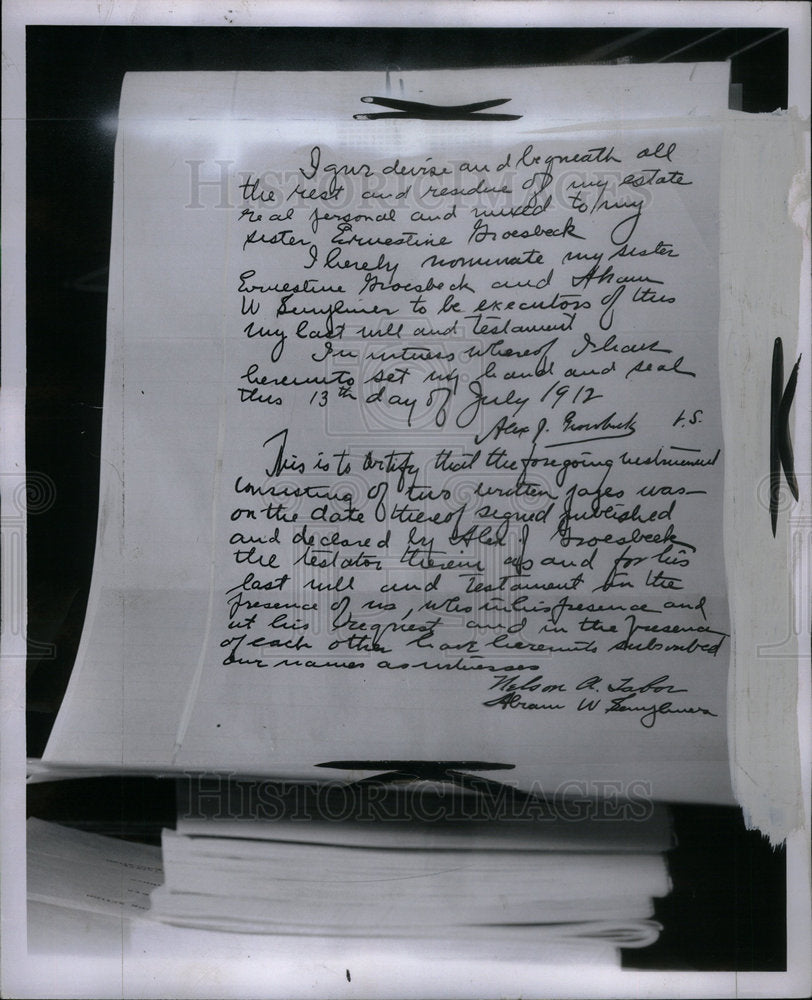 I give devise and bequeath all
the rest and residue of my estate
real personal and mixed to my
sister Ernestine Groesbeck
I hereby nominate my sister
Ernestine Groesbeck and Abram
W to be executors of this
my last will and testament
In witness whereof I have
hereunto set my hand and seal
this 13th day of July 1912
Alex J. Groesbeck L.S.
This is to certify that the foregoing instrument
consisting of two written pages was
on the date thereof signed published
and declared by Alex J Groesbeck
the testator therein as and for his
last will and testament in the
presence of us, who in his presence and
at his request and in the presence
of each other have hereunto subscribed
our names as witnesses
Nelson A. Tabor
Abram W
HISTORIC IMAGES
HISTORIC IMAGES